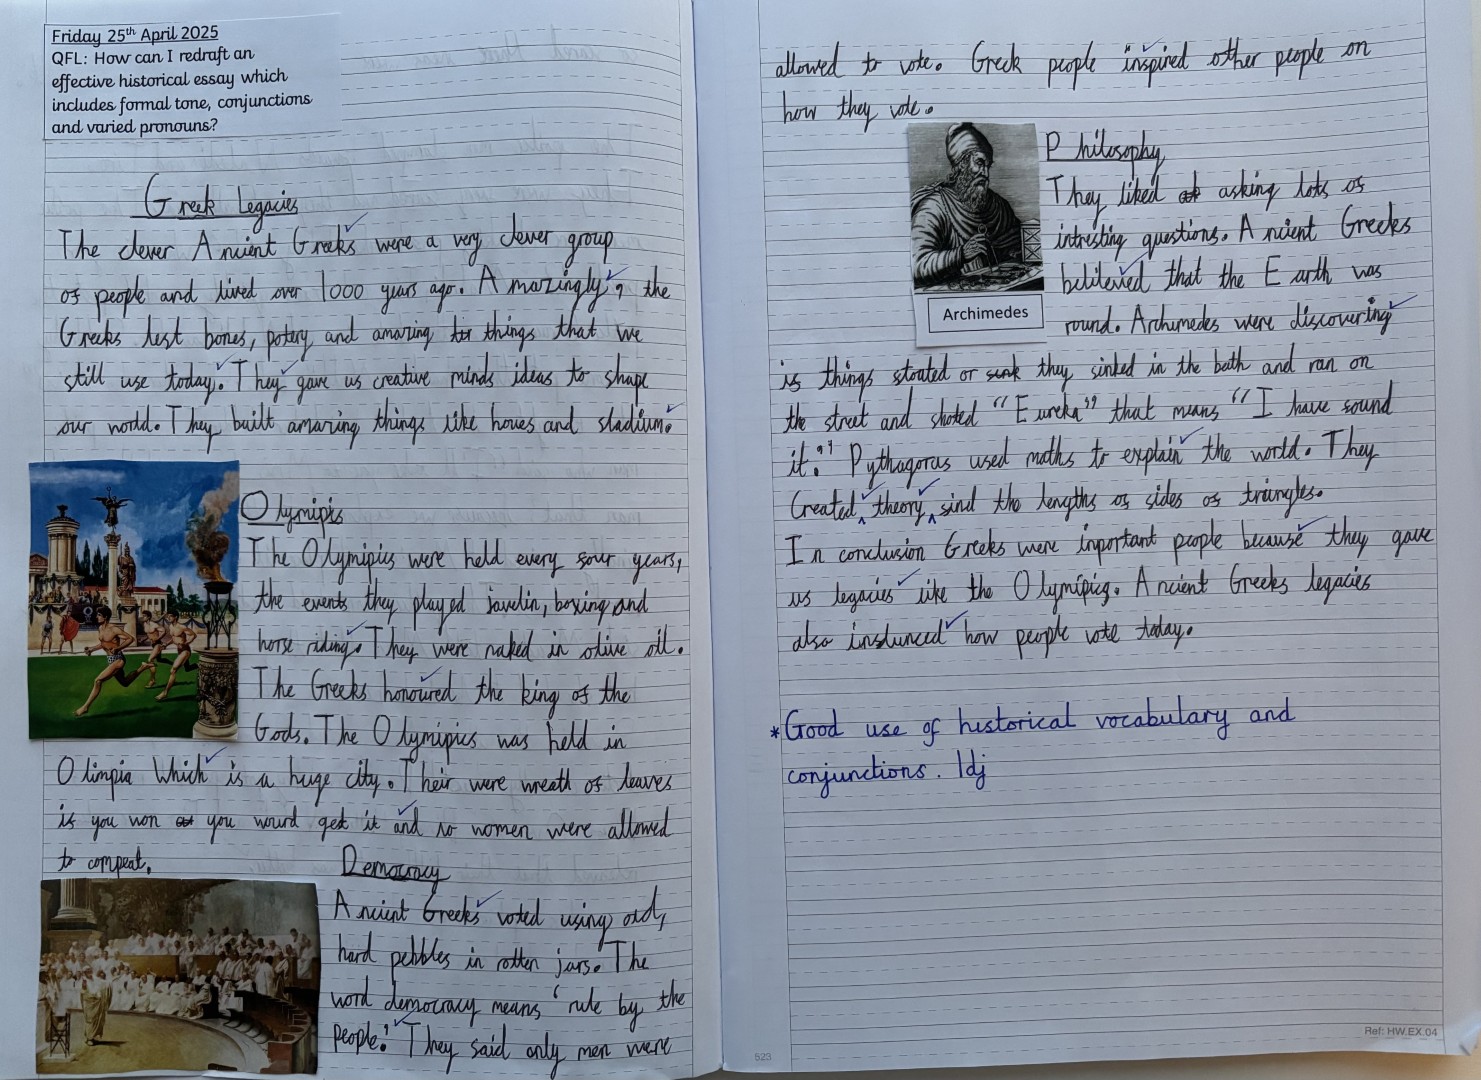 Friday 25th April 2025
QFL: How can I redraft an
effective historical essay which
includes formal tone, conjunctions
and varied pronouns?
Greek Legacies
The clever Ancient Greeks were a very clever group
of people and lived over 1000 years ago. Amazingly, the
Greeks lest bones, potery and amazing things that we
still use today. They gave us creative minds ideas to shape
our world. They built amazing things like houes and stadium.
Olymipis
The Olymipics were held every four years,
the events they played javelin, boxing and
horse riding. They were naked in olive oil.
The Greeks honoured the king of the
Gods. The Olymipics was held in
Olimpia Which is a huge city. Their were wreath of leaves
if you won you wourd get it and no women were allowed
to compeat.
Democracy
Ancient Greeks voted using old,
hard pebbles in rotten jars. The
word democracy means 'rule by the
people.' They said only men were
allowed to vote. Greek people inspired other people on
how they vote.
Philosophy
They liked asking lots of
intresting questions. Ancient Greeks
belileved that the Earth was
round. Archimedes were discovering
Archimedes
if things stoated or they sinked in the bath and ran on
the street and shoted "Eureka" that means "I have found
it." Pythagoras used maths to explain the world. They
Created theory find the lengths of sides of triangles.
In conclusion Greeks were inportant people because they gave
us legacies like the Olymipics. Ancient Greeks legacies
also inslunced how people vote today.
*Good use of historical vocabulary and
conjunctions. ldj
Ref: HW.EX.04
523